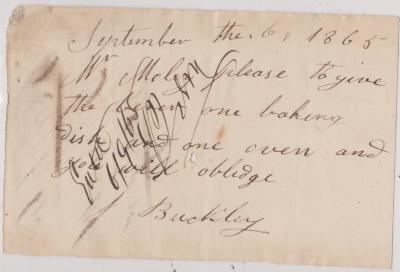 September the 6, 1865
Mr Moly please to give
the berer one baking
dish and one oven and
you will oblidge
Buckley